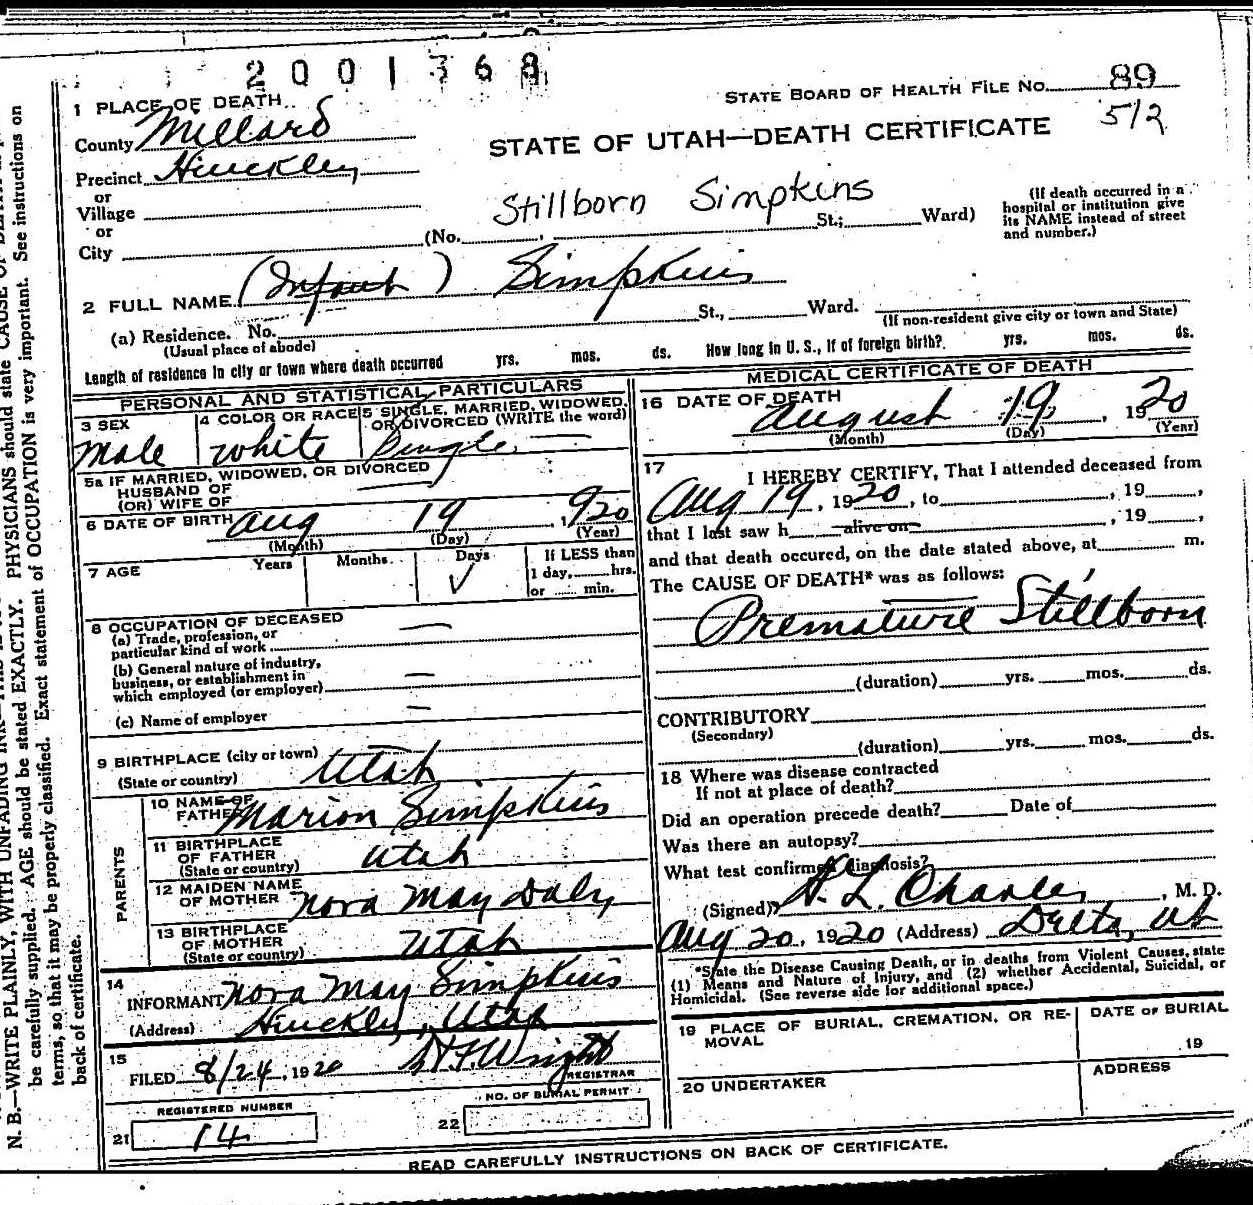 2001368
STATE BOARD OF HEALTH FILE No. 89
512
STATE OF UTAH—DEATH CERTIFICATE
1 PLACE OF DEATH
County Millard
Precinct Hinckley
or
Village
or
City
Stillborn Simpkins
(No. , St.; Ward)
(If death occurred in a hospital or institution give its NAME instead of street and number.)
2 FULL NAME (Infant) Simpkins
(a) Residence. No. St., Ward.
(Usual place of abode)
(If non-resident give city or town and State)
Length of residence in city or town where death occurred yrs. mos. ds. How long in U. S., if of foreign birth? yrs. mos. ds.
PERSONAL AND STATISTICAL PARTICULARS
3 SEX Male
4 COLOR OR RACE White
5 SINGLE, MARRIED, WIDOWED, OR DIVORCED (WRITE the word) Single
5a IF MARRIED, WIDOWED, OR DIVORCED
HUSBAND OF
(OR) WIFE OF
6 DATE OF BIRTH Aug 19, 1920
(Month) (Day) (Year)
7 AGE Years Months Days ✓ If LESS than 1 day, hrs. or min.
8 OCCUPATION OF DECEASED
(a) Trade, profession, or particular kind of work —
(b) General nature of industry, business, or establishment in which employed (or employer) —
(c) Name of employer —
9 BIRTHPLACE (city or town)
(State or country) Utah
PARENTS
10 NAME OF FATHER Marion Simpkins
11 BIRTHPLACE OF FATHER (State or country) Utah
12 MAIDEN NAME OF MOTHER Nora May Daly
13 BIRTHPLACE OF MOTHER (State or country) Utah
14 INFORMANT Nora May Simpkins
(Address) Hinckley, Utah
15 FILED 8/24, 1920 H.F. Wright
REGISTRAR
REGISTERED NUMBER
21 14
NO. OF BURIAL PERMIT
22
MEDICAL CERTIFICATE OF DEATH
16 DATE OF DEATH August 19, 1920
(Month) (Day) (Year)
17 I HEREBY CERTIFY, That I attended deceased from
Aug 19, 1920, to , 19 ,
that I last saw h alive on , 19 ,
and that death occured, on the date stated above, at m.
The CAUSE OF DEATH* was as follows:
Premature Stillborn
(duration) yrs. mos. ds.
CONTRIBUTORY
(Secondary)
(duration) yrs. mos. ds.
18 Where was disease contracted
If not at place of death?
Did an operation precede death? Date of
Was there an autopsy?
What test confirmed diagnosis?
(Signed) H. L. Charles, M. D.
Aug 20, 1920 (Address) Delta, Ut
*State the Disease Causing Death, or in deaths from Violent Causes, state
(1) Means and Nature of Injury, and (2) whether Accidental, Suicidal, or
Homicidal. (See reverse side for additional space.)
19 PLACE OF BURIAL, CREMATION, OR REMOVAL
DATE OF BURIAL
19
20 UNDERTAKER
ADDRESS
READ CAREFULLY INSTRUCTIONS ON BACK OF CERTIFICATE.
be carefully supplied. AGE should be stated EXACTLY. PHYSICIANS should state CAUSE OF
terms, so that it may be properly classified. Exact statement of OCCUPATION is very important. See instructions on
back of certificate.
N. B.—WRITE PLAINLY, WITH UNFADING INK